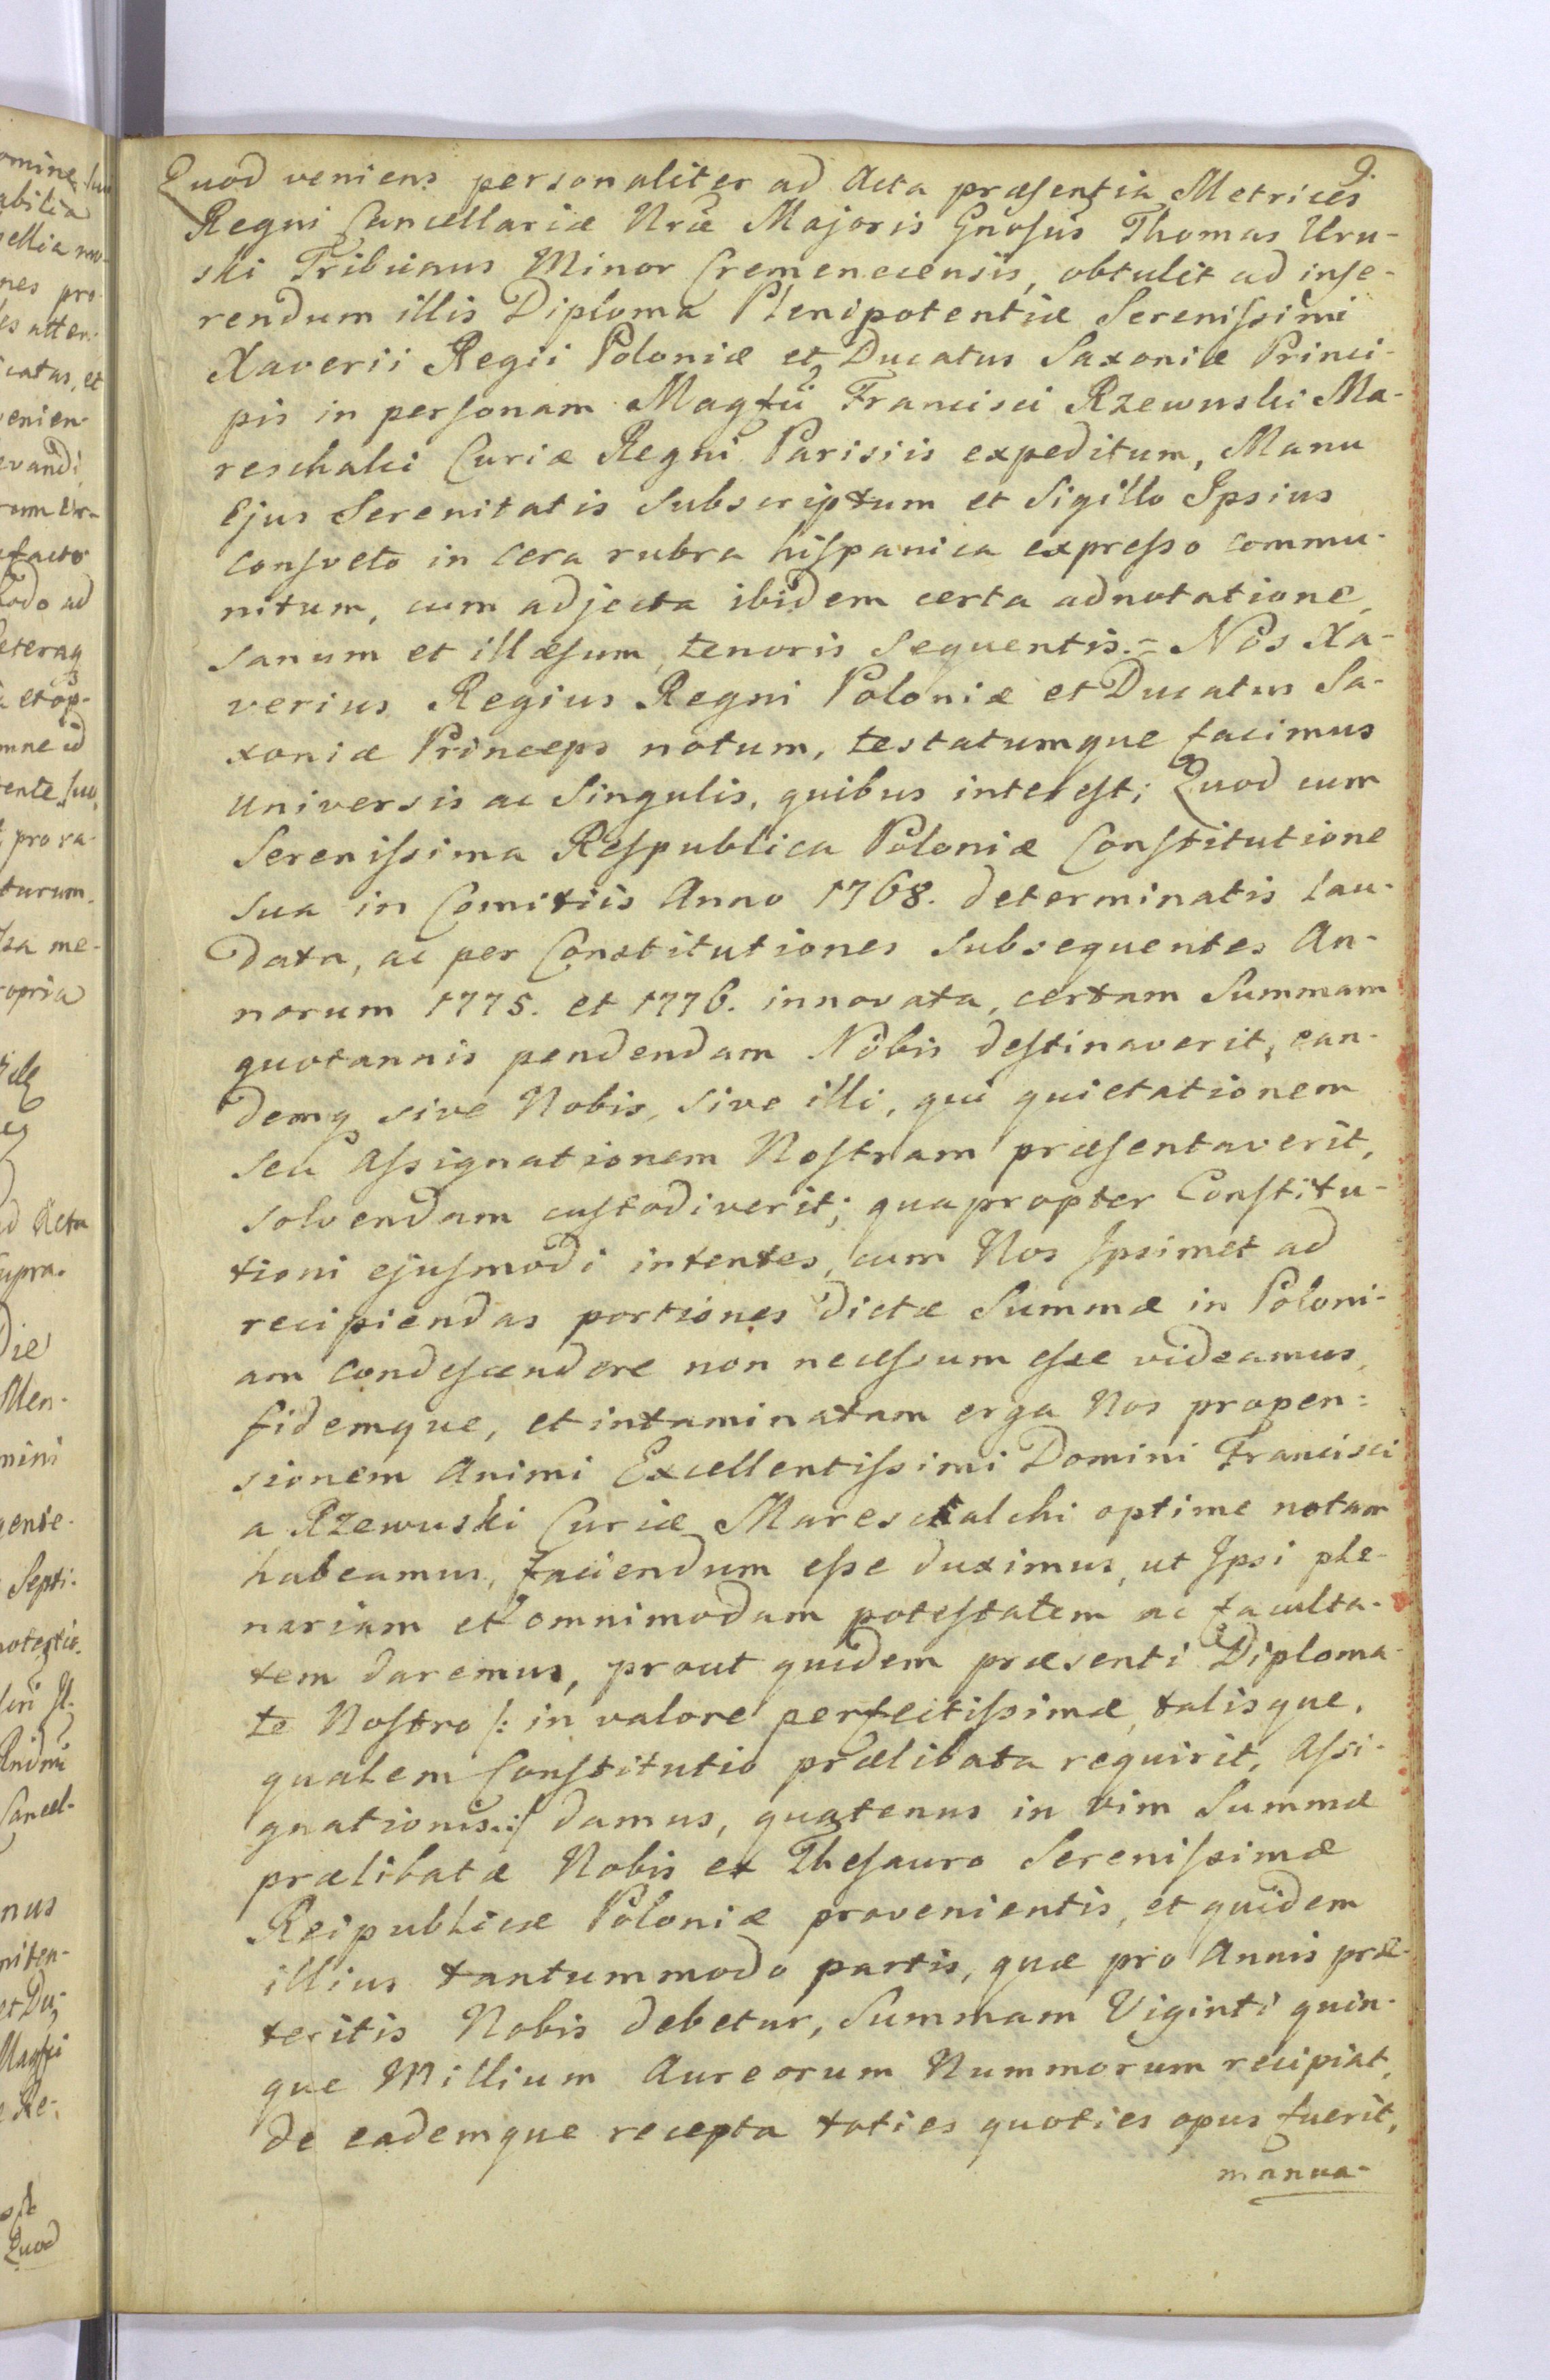 9.
Quod veniens personaliter ad Acta præsentia Metrices
Regni Cancellariæ Nræ Majoris Gnosus Thomas Uru-
ski Tribunus Minor Cremenecensis, obtulit ad inse-
rendum illis Diploma Plenipotentiæ Serenissimi
Xaverii Regii Poloniæ et Ducatus Saxoniæ Princi-
pis in personam Magfci Francisci Rzewuski Ma-
reschalci Curiæ Regni Parisiis expeditum, Manu
Ejus Serenitatis Subscriptum et Sigillo Ipsius
consveto in cera rubra hispanica expresso commu-
nitum, cum adjecta ibidem certa adnotatione,
sanum et illæsum, tenoris sequentis.= Nos Xa-
verius Regius Regni Poloniæ et Ducatus Sa-
xoniæ Princeps notum, testatumque facimus
Universis ac Singulis, quibus interest; Quod cum
Serenissima Respublica Poloniæ Constitutione
sua in Comitiis Anno 1768. determinatis lau-
data, ac per Constitutiones subsequentes An-
norum 1775. et 1776. innovata, certam Summam
quotannis pendendam Nobis destinaverit, ean-
demq sive Nobis, sive illi, qui quietationem
seu Assignationem Nostram præsentaverit,
solvendam custodiverit; quapropter Constitu-
tioni ejusmodi intentes, cum Nos Ipsimet ad
recipiendas portiones dictæ Summæ in Poloni-
am condescendere non necessum esse videamus,
fidemque, et intaminatam erga Nos propen=
sionem Animi Excellentissimi Domini Francisci
a Rzewuski Curiæ Mareschalchi optime notam
habeamus, faciendum esse duximus, ut Ipsi ple-
nariam et omnimodam potestatem ac faculta-
tem daremus, prout quidem præsenti Diploma-
te Nostro /: in valore perfectissimæ, talisque,
qualem Constitutio prælibata requirit, Assi-
gnationis :/ damus, quatenus in vim Summæ
prælibatæ Nobis ex Thesauro Serenissimæ
Reipublicæ Poloniæ provenientis, et quidem
illius tantummodo partis, quæ pro Annis præ-
teritis Nobis debetur, Summam Viginti quin-
que Millium Aureorum Nummorum recipiat,
de eademque recepta toties quoties opus fuerit,
manua-